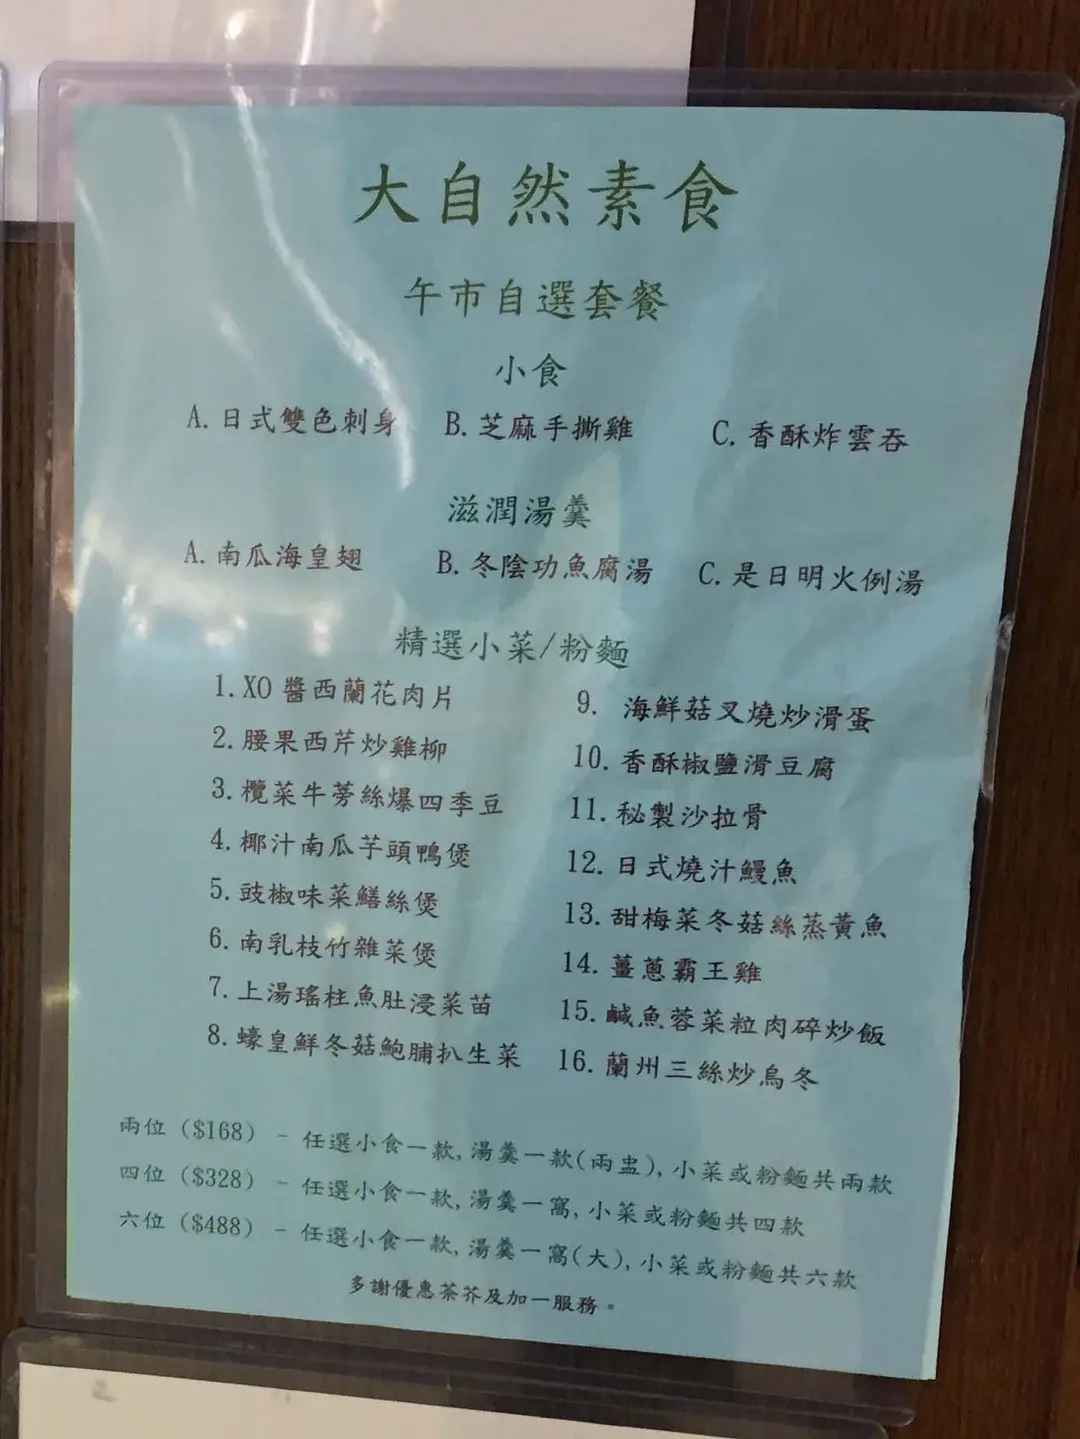 大自然素食
午市自選套餐
小食
A. 日式雙色刺身 B. 芝麻手撕雞 C. 香酥炸雲吞
滋潤湯羹
A. 南瓜海皇翅 B. 冬陰功魚腐湯 C. 是日明火例湯
精選小菜/粉麵
1. XO 醬西蘭花肉片
2. 腰果西芹炒雞柳
3. 欖菜牛蒡絲爆四季豆
4. 椰汁南瓜芋頭鴨煲
5. 豉椒味菜鱔絲煲
6. 南乳枝竹雜菜煲
7. 上湯瑤柱魚肚浸菜苗
8. 蠔皇鮮冬菇鮑脯扒生菜
9. 海鮮菇叉燒炒滑蛋
10. 香酥椒鹽滑豆腐
11. 秘製沙拉骨
12. 日式燒汁鰻魚
13. 甜梅菜冬菇絲蒸黃魚
14. 薑蔥霸王雞
15. 鹹魚蓉菜粒肉碎炒飯
16. 蘭州三絲炒烏冬
兩位 ($168) - 任選小食一款, 湯羹一款(兩盅), 小菜或粉麵共兩款
四位 ($328) - 任選小食一款, 湯羹一窩, 小菜或粉麵共四款
六位 ($488) - 任選小食一款, 湯羹一窩(大), 小菜或粉麵共六款
多謝優惠茶芥及加一服務。